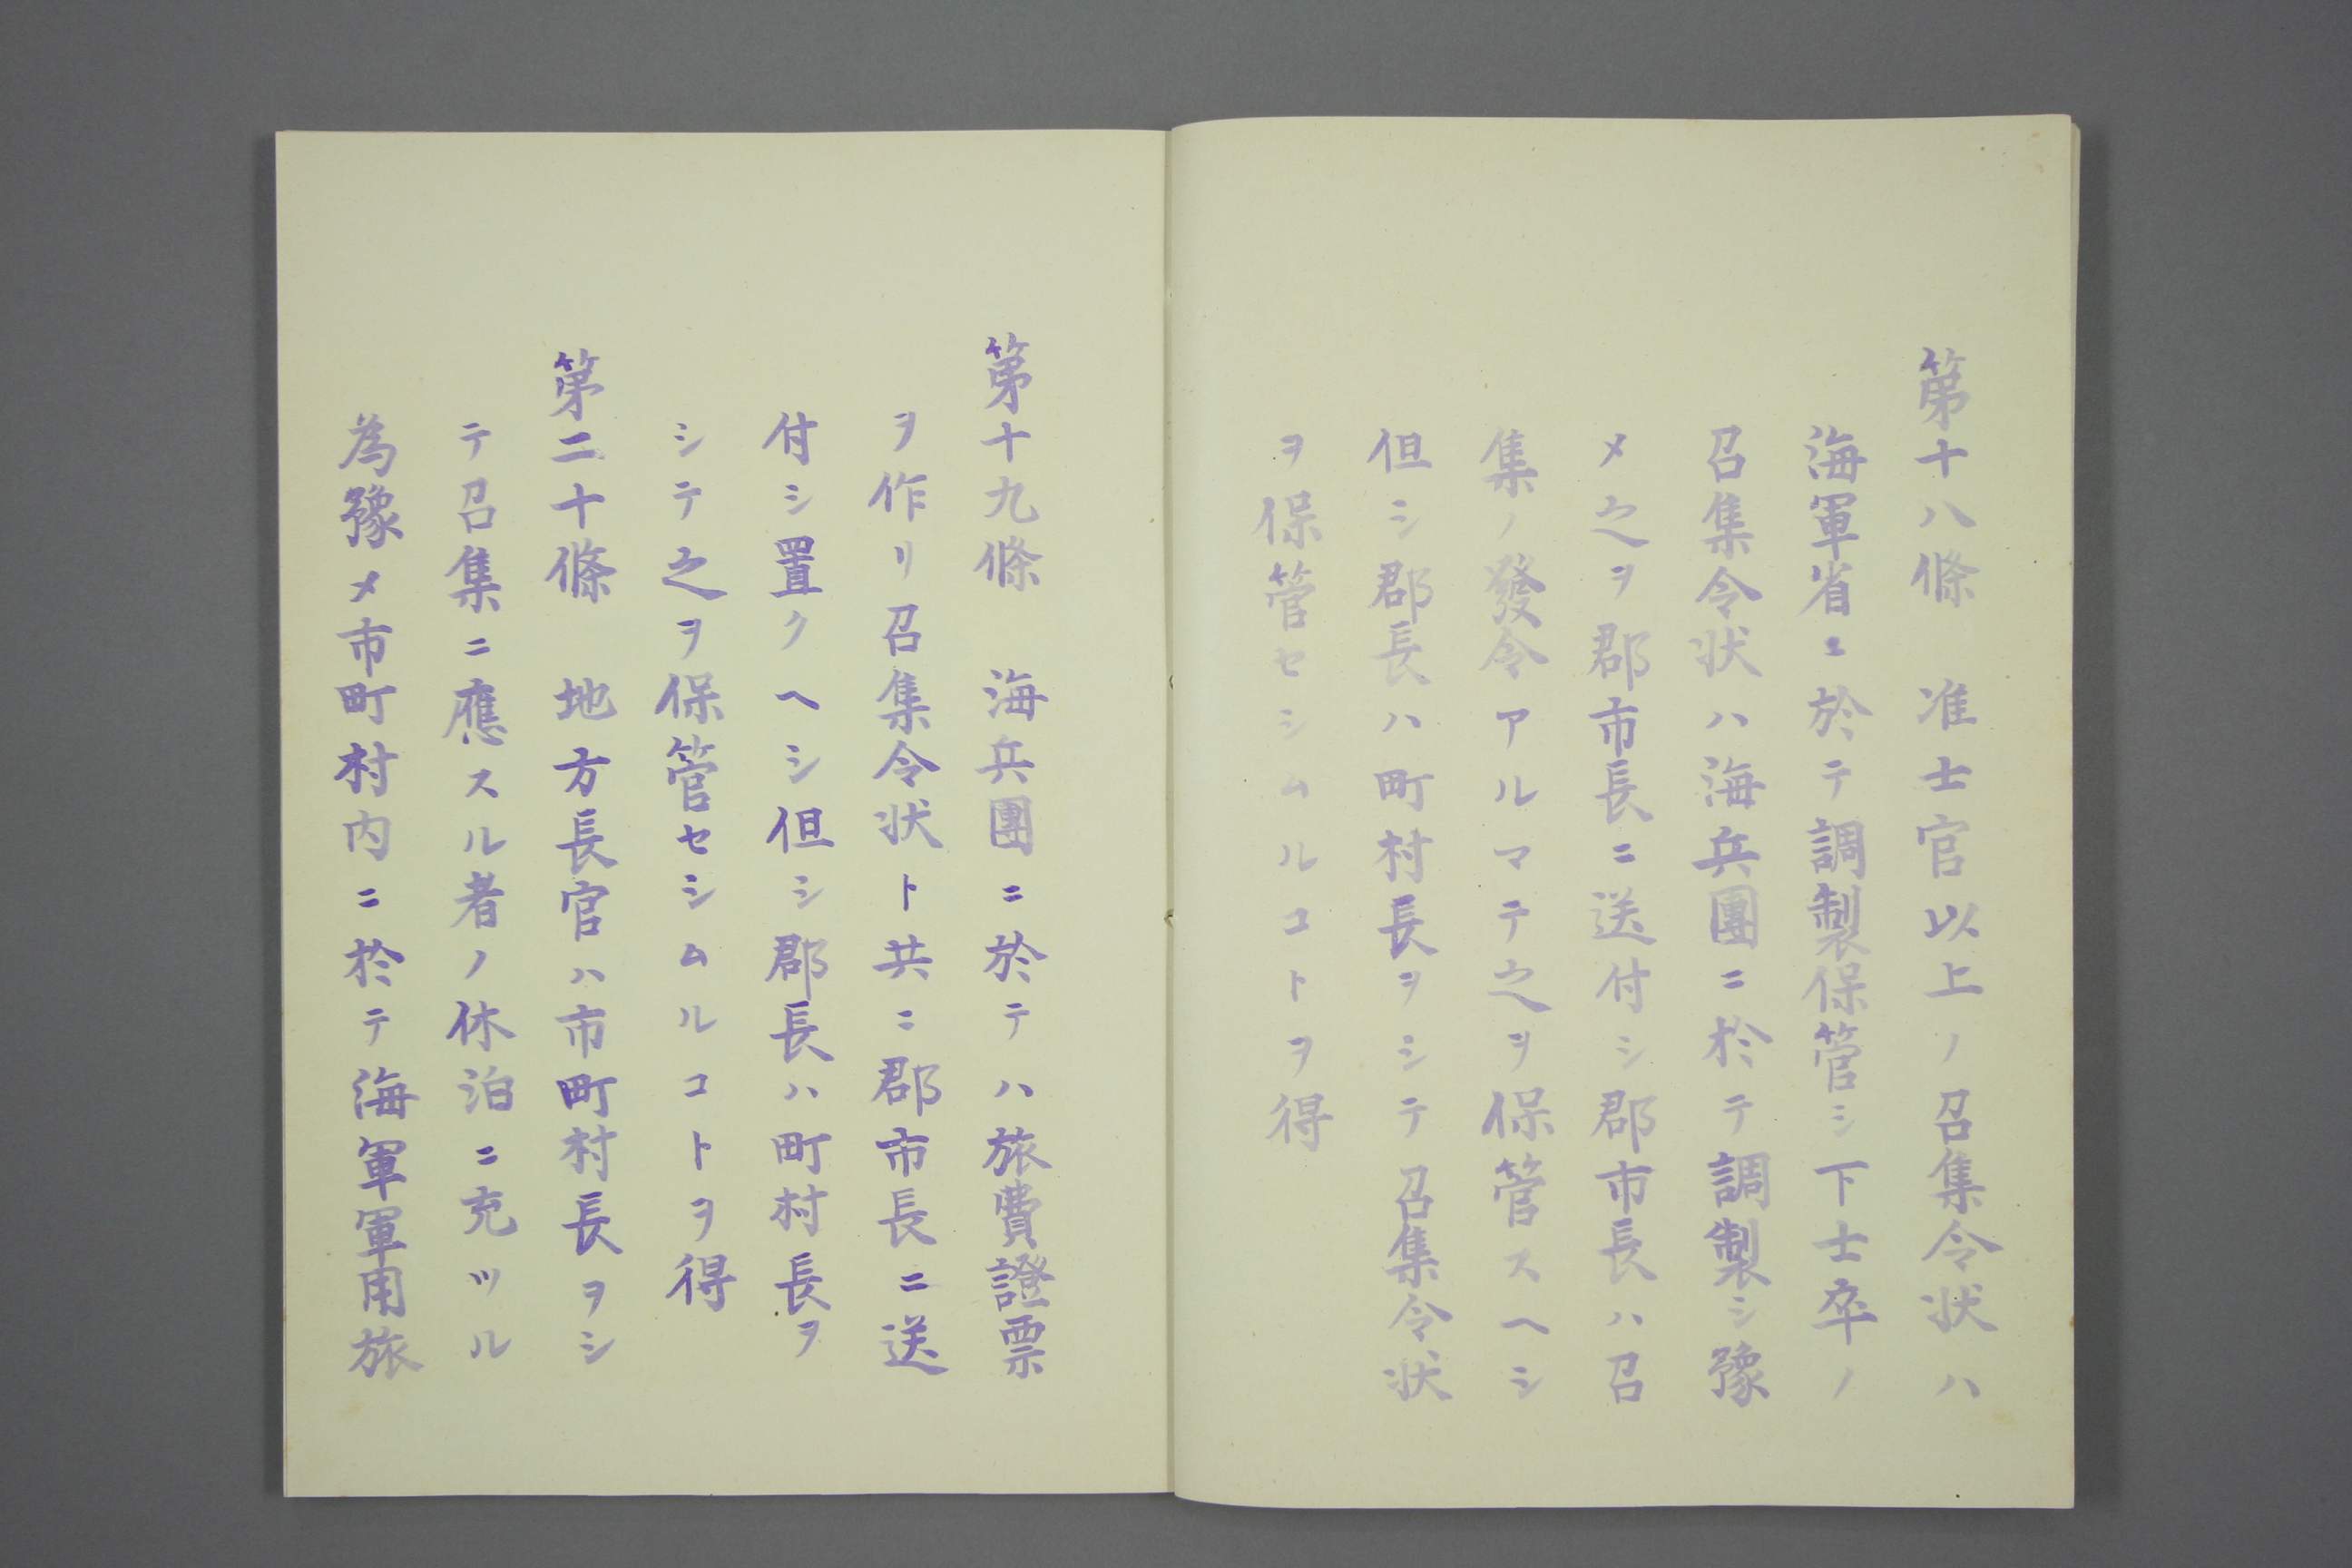 第十八條　准士官以上ノ召集令状ハ
海軍省ニ於テ調製保管シ下士卒ノ
召集令状ハ海兵團ニ於テ調製シ豫
メ之ヲ郡市長ニ送付シ郡市長ハ召
集ノ發令アルマテ之ヲ保管スヘシ
但シ郡長ハ町村長ヲシテ召集令状
ヲ保管セシムルコトヲ得
第十九條　海兵團ニ於テハ旅費證票
ヲ作リ召集令状ト共ニ郡市長ニ送
付シ置クヘシ但シ郡長ハ町村長ヲ
シテ之ヲ保管セシムルコトヲ得
第二十條　地方長官ハ市町村長ヲシ
テ召集ニ應スル者ノ休泊ニ充ツル
為豫メ市町村内ニ於テ海軍軍用旅